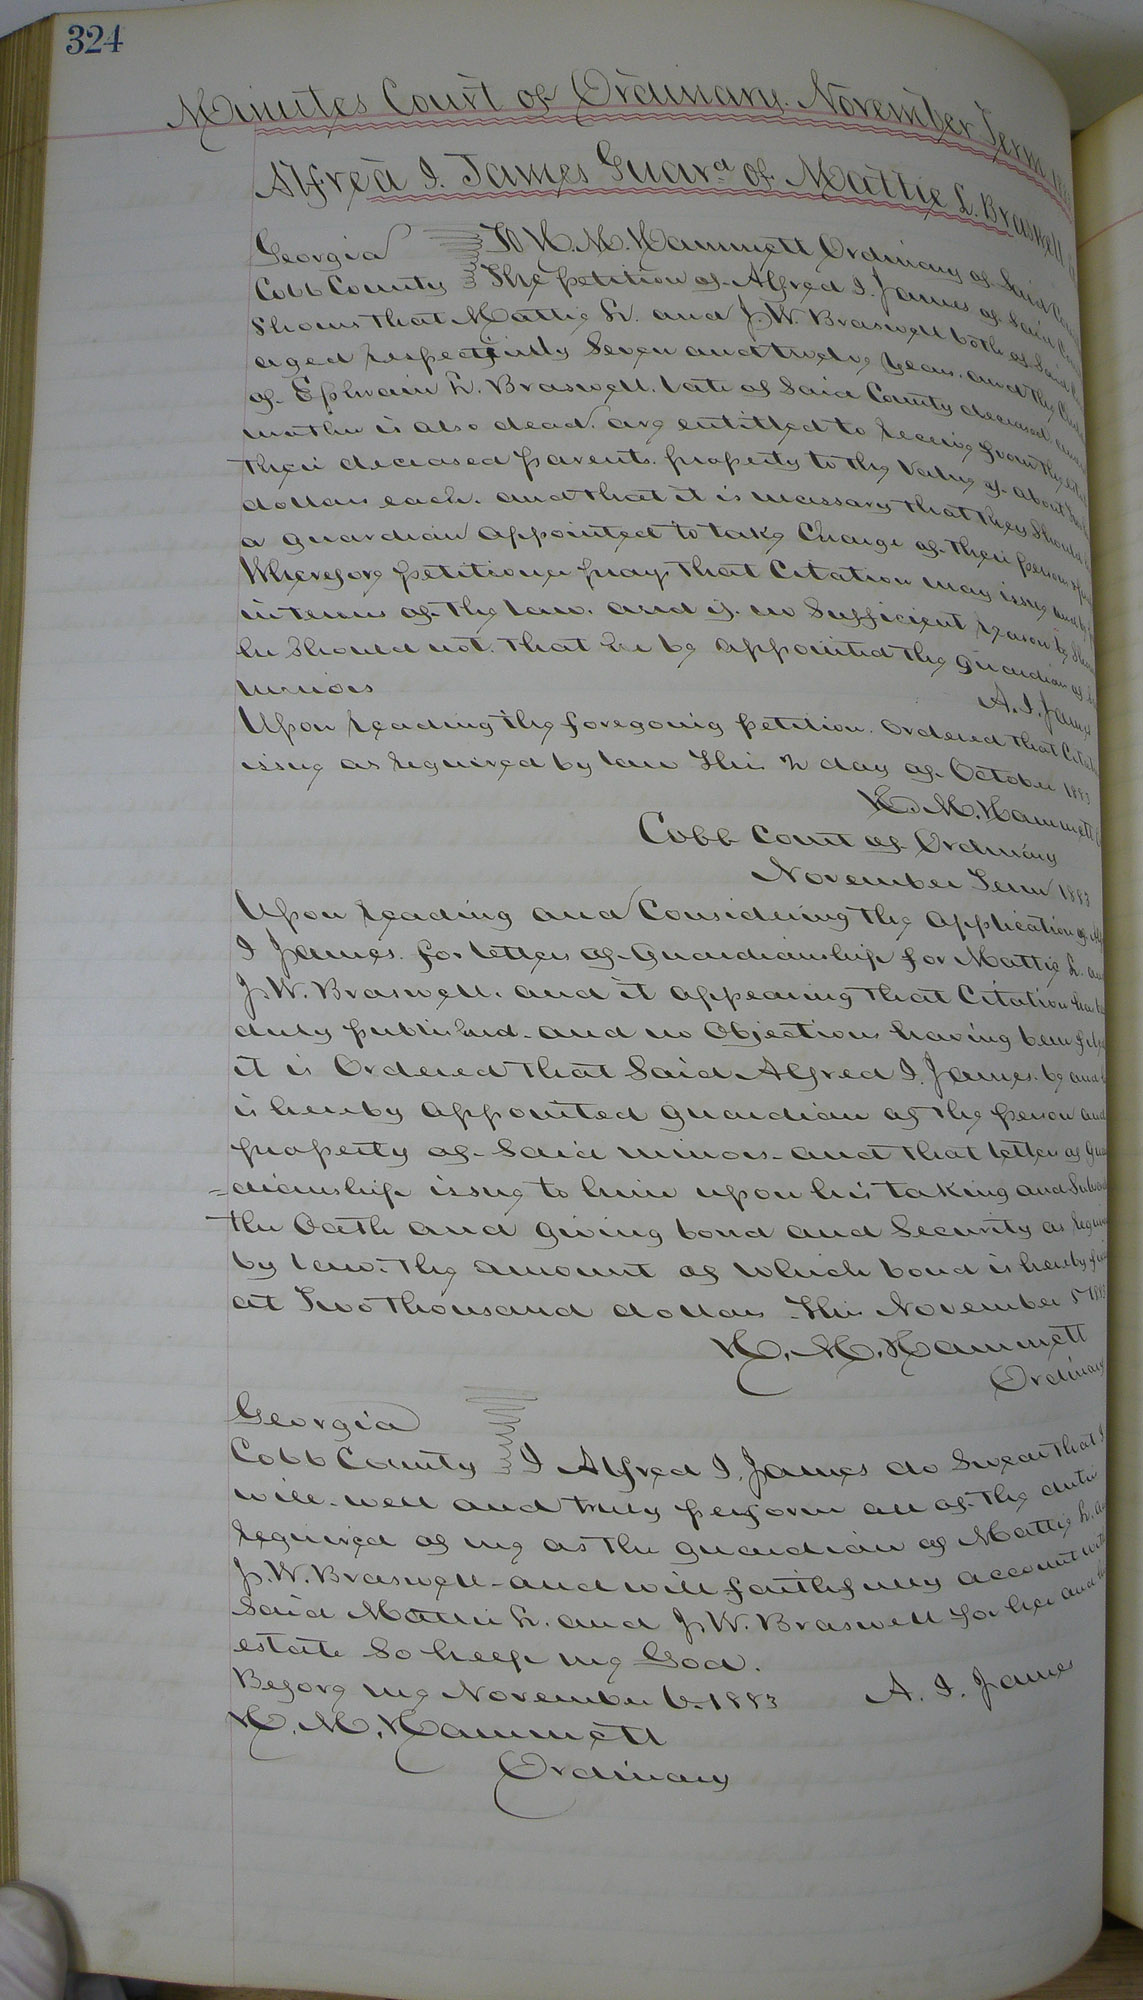 324
Minutes Court of Ordinary November Term
Alfred I. James Guard of Mattie L. Braswell
Georgia To H. M. Hammett Ordinary of Said
Cobb County The petition of Alfred I. James of Said
Shows that Mattie L. and J. W. Braswell both of Said
aged respectively Seven and twelve years and the
of Ephraim L. Braswell late of Said County deceased
mother is also dead are entitled to receive from the
their deceased parents property to the value of about
dollars each. and that it is necessary that they Should
a guardian appointed to take Charge of their persons
Wherefore petitioner prays that Citation may issue and
in terms of the law. and if no Sufficient reason be
he Should not. that he be appointed the guardian of
minors
A. I. James
Upon reading the foregoing petition. Ordered that
issue as required by law This 2 day of October 1883
H. M. Hammett
Cobb Court of Ordinary
November Term 1883
Upon reading and Considering the application of
I James. for letters of guardianship for Mattie L. and
J. W. Braswell. and it appearing that Citation has
duly published. and no Objections having been filed
it is Ordered that Said Alfred I. James. be and
is hereby appointed guardian of the person and
property of Said minors. and that letters of Guar
=dianship issue to him upon his taking and
the Oath and giving bond and Security as
by law. the amount of which bond is hereby
at Two thousand dollars This November 5 1883
H. M. Hammett
Ordinary
Georgia
Cobb County I Alfred I. James do Swear that I
will well and truly perform all of the duties
required of me as the guardian of Mattie L. and
J. W. Braswell and will faithfully account with
Said Mattie L. and J. W. Braswell for her and
estate So help me God.
Before me November 6. 1883 A. I. James
H. M. Hammett
Ordinary